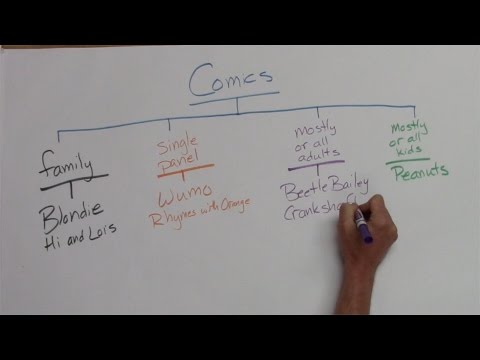 Comcs
family
Blondie
Hi and Lois
Single
panel
Wumo
Rhymes with Orange
Mostly
or all
adults
Beetle Bailey
Crankshaf
Mostly
or all
kids
Peanuts